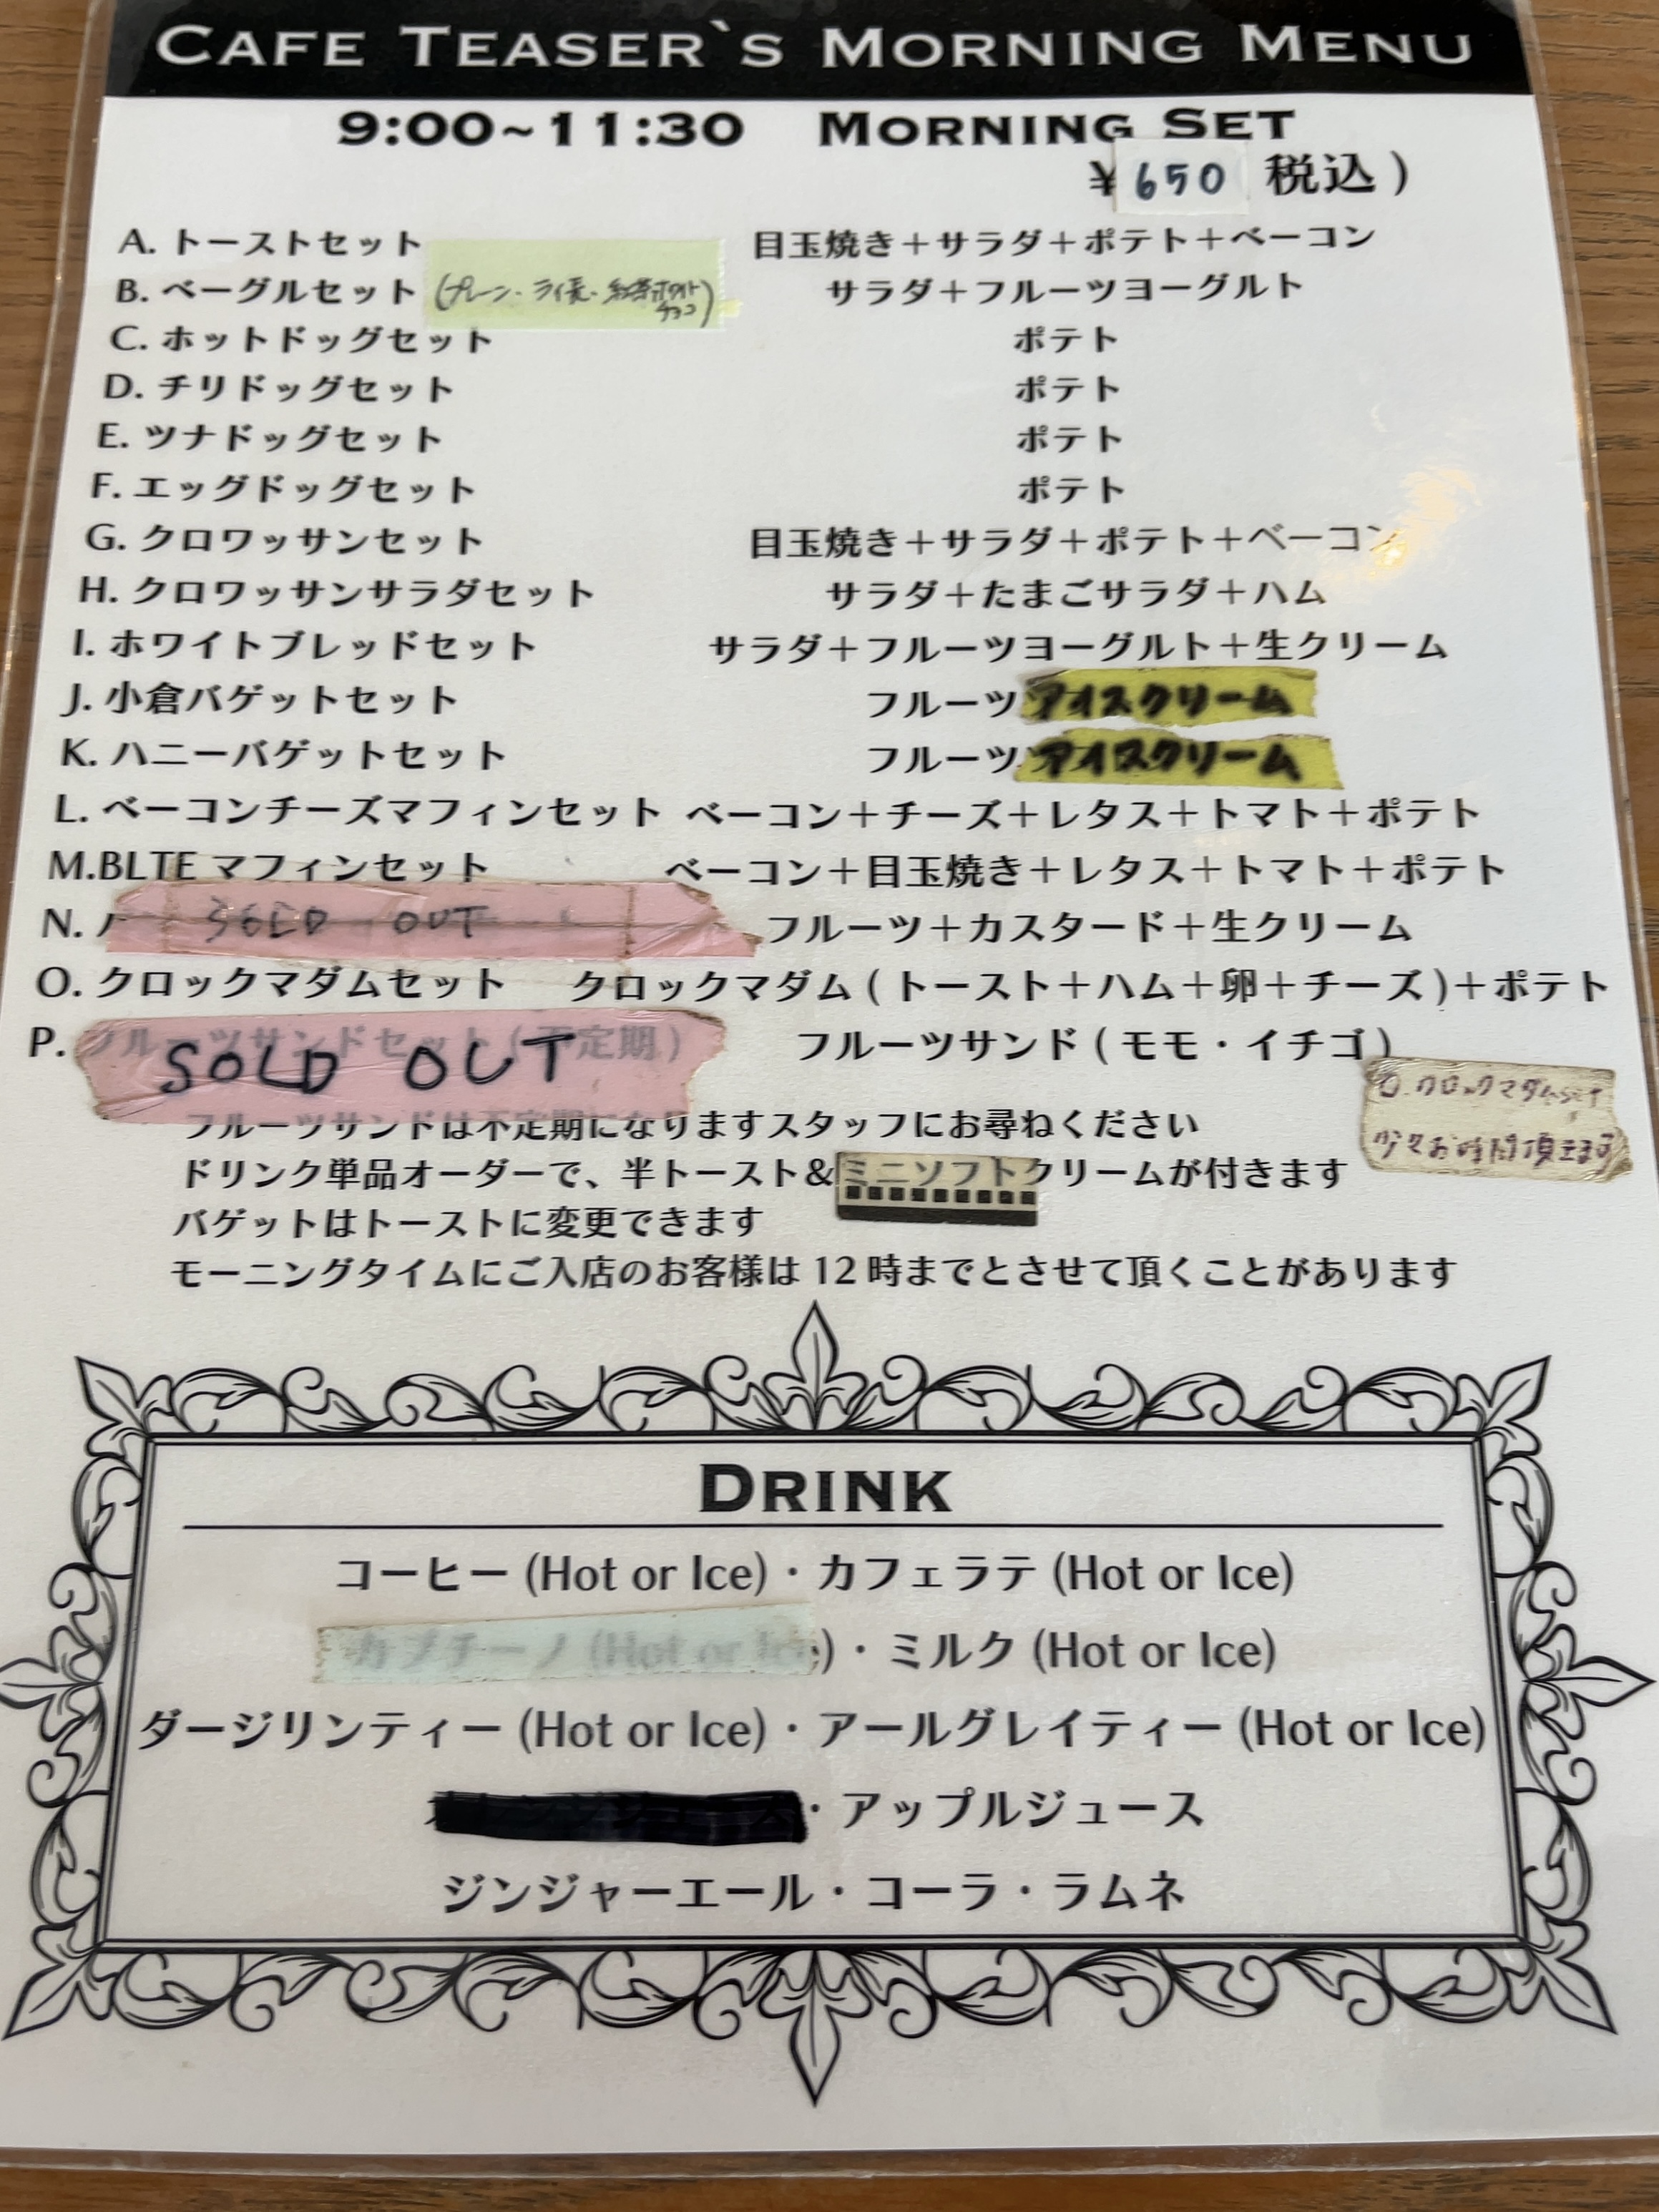 CAFE TEASER`S MORNING MENU
9:00~11:30 MORNING SET
¥650 税込)
A. トーストセット 目玉焼き+サラダ+ポテト+ベーコン
B. ベーグルセット (プレーン・ライ麦・紅茶ホワイトチョコ) サラダ+フルーツヨーグルト
C. ホットドッグセット ポテト
D. チリドッグセット ポテト
E. ツナドッグセット ポテト
F. エッグドッグセット ポテト
G. クロワッサンセット 目玉焼き+サラダ+ポテト+ベーコン
H. クロワッサンサラダセット サラダ+たまごサラダ+ハム
I. ホワイトブレッドセット サラダ+フルーツヨーグルト+生クリーム
J. 小倉バゲットセット フルーツ アイスクリーム
K. ハニーバゲットセット フルーツ アイスクリーム
L. ベーコンチーズマフィンセット ベーコン+チーズ+レタス+トマト+ポテト
M.BLTE マフィンセット ベーコン+目玉焼き+レタス+トマト+ポテト
N. SOLD OUT フルーツ+カスタード+生クリーム
O. クロックマダムセット クロックマダム(トースト+ハム+卵+チーズ)+ポテト
P. フルーツサンドセット(不定期) SOLD OUT フルーツサンド(モモ・イチゴ)
O.クロックマダムset
少々お時間頂きます
フルーツサンドは不定期になりますスタッフにお尋ねください
ドリンク単品オーダーで、半トースト&ミニソフトクリームが付きます
バゲットはトーストに変更できます
モーニングタイムにご入店のお客様は 12 時までとさせて頂くことがあります
DRINK
コーヒー (Hot or Ice)・カフェラテ (Hot or Ice)
カプチーノ (Hot or Ice)・ミルク (Hot or Ice)
ダージリンティー (Hot or Ice)・アールグレイティー (Hot or Ice)
・アップルジュース
ジンジャーエール・コーラ・ラムネ